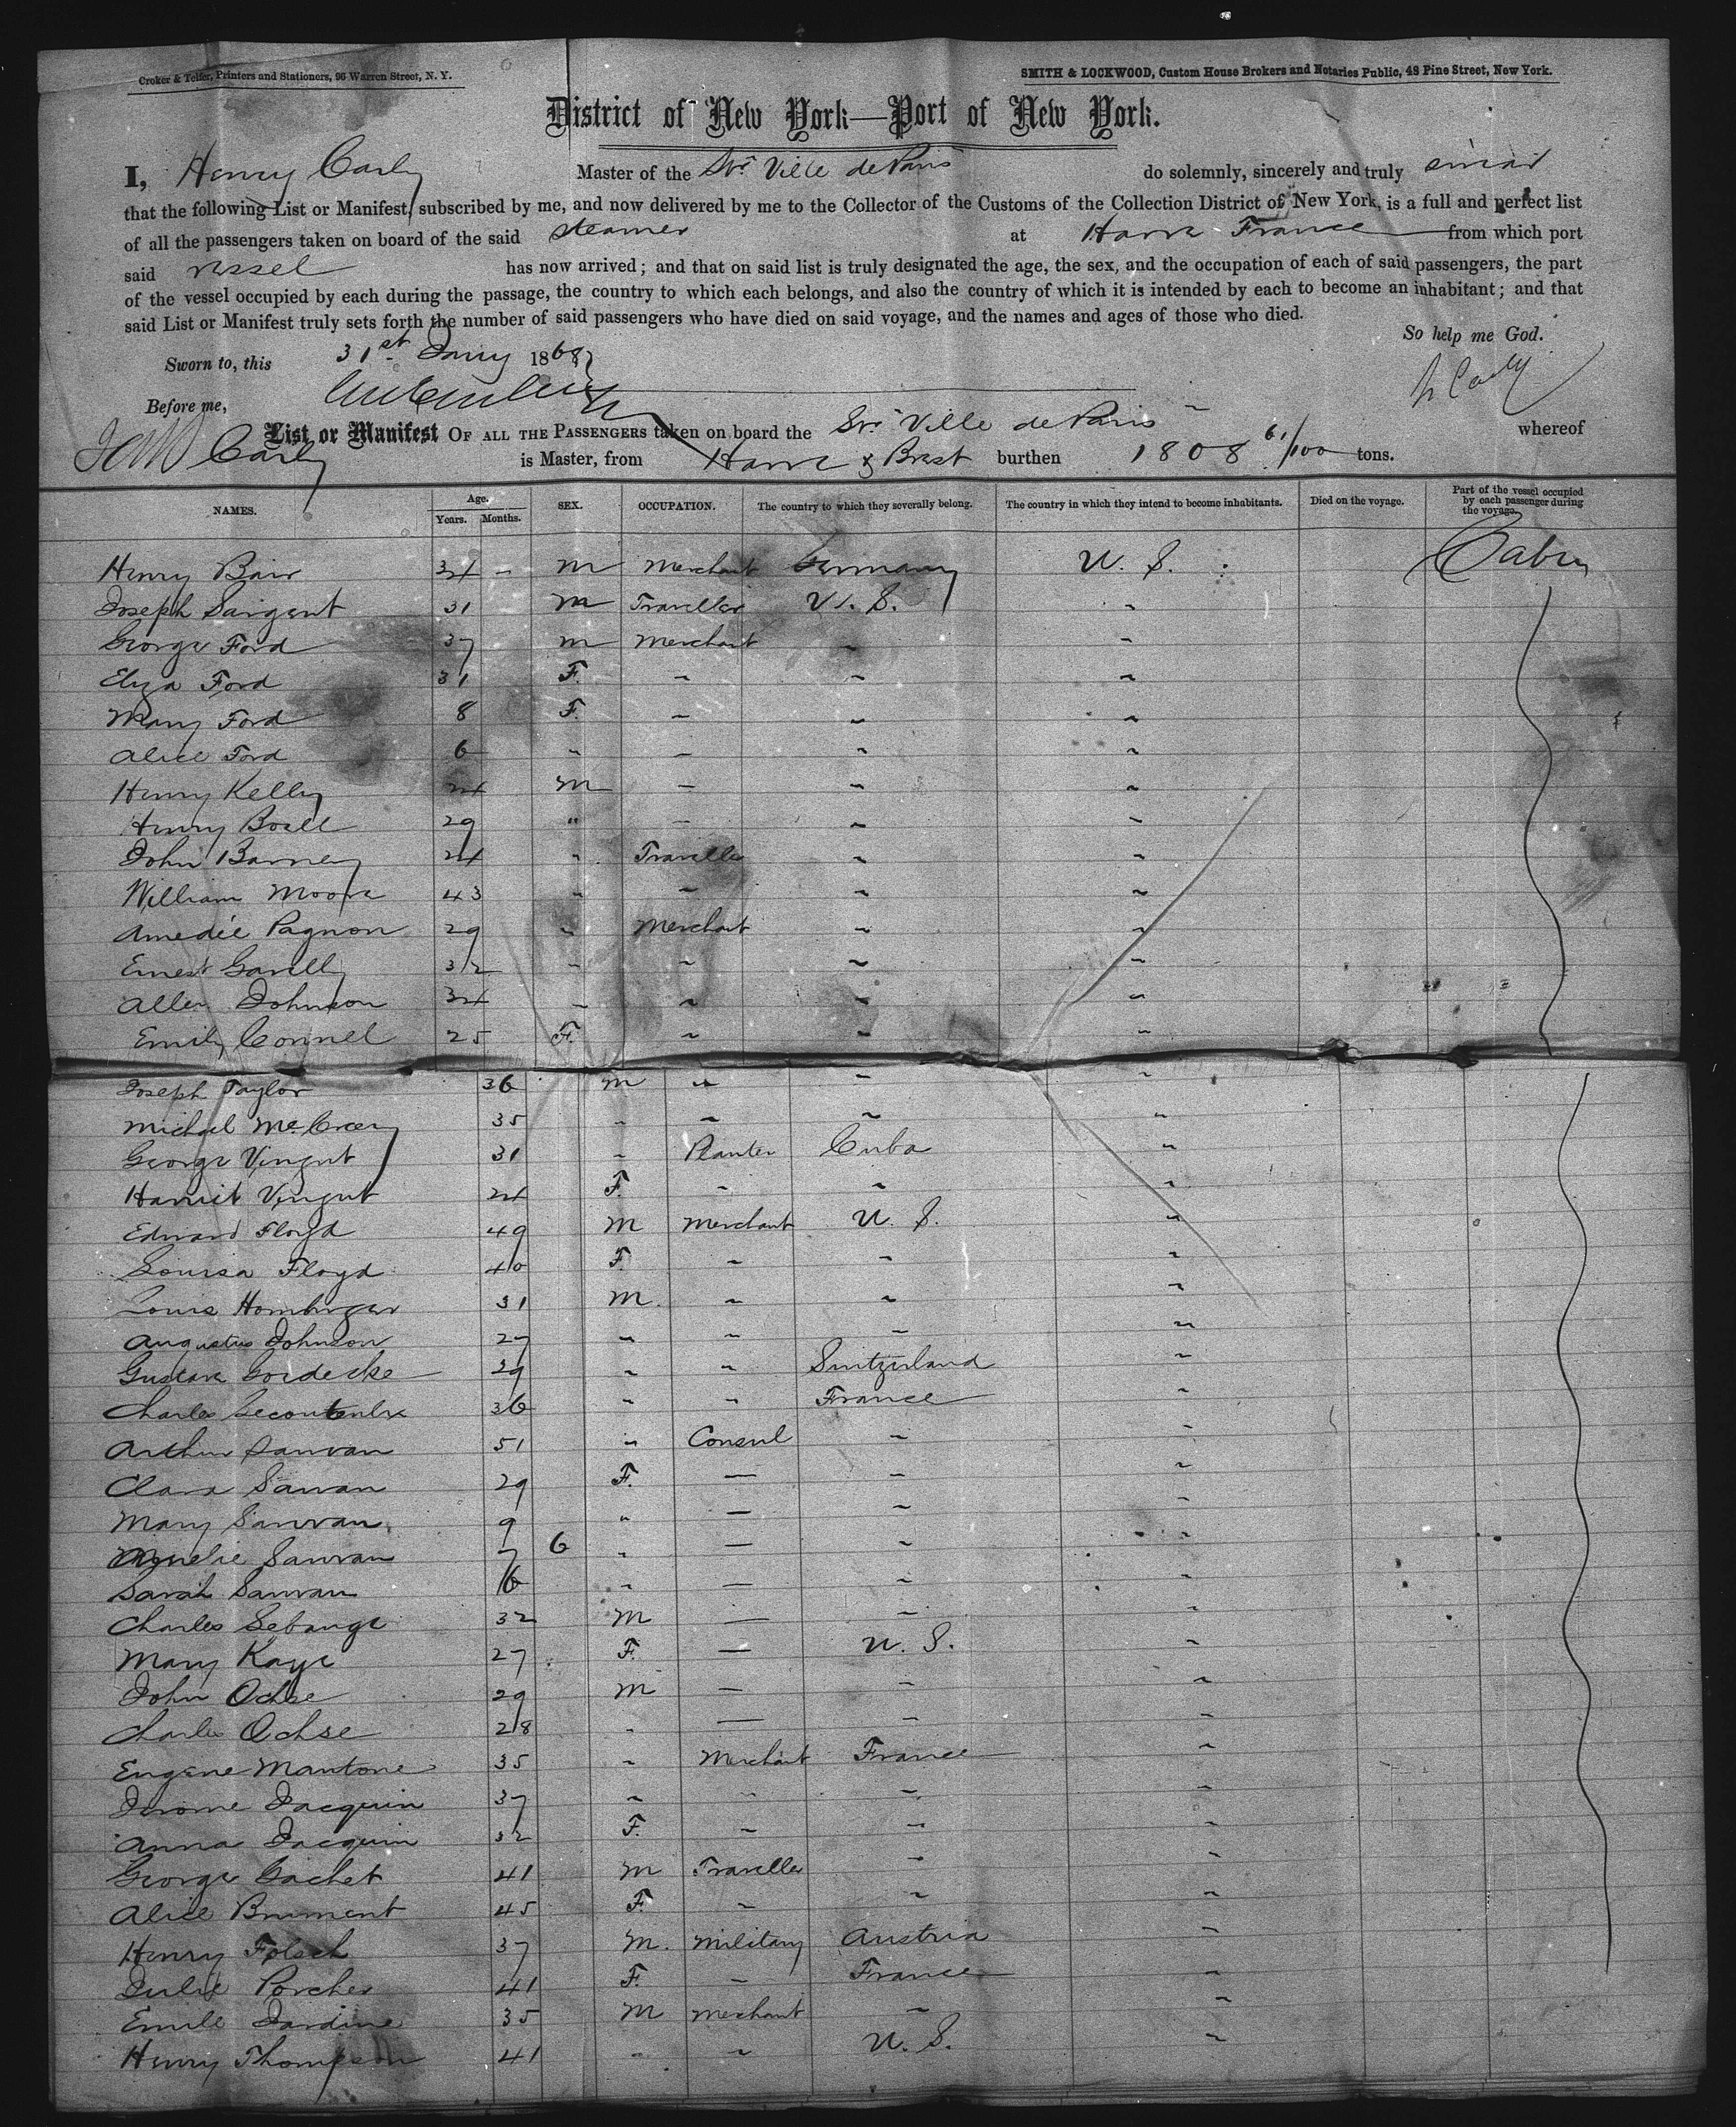 Croker & Telfer, Printers and Stationers, 96 Warren Street, N. Y.
SMITH & LOCKWOOD, Custom House Brokers and Notaries Public, 48 Pine Street, New York.
District of New York—Port of New York.
I, Henry Master of the Str Ville de Paris do solemnly, sincerely and truly swear
that the following List or Manifest, subscribed by me, and now delivered by me to the Collector of the Customs of the Collection District of New York, is a full and perfect list
of all the passengers taken on board of the said steamer at Havre France from which port
said vessel has now arrived; and that on said list is truly designated the age, the sex, and the occupation of each of said passengers, the part
of the vessel occupied by each during the passage, the country to which each belongs, and also the country of which it is intended by each to become an inhabitant; and that
said List or Manifest truly sets forth the number of said passengers who have died on said voyage, and the names and ages of those who died.
So help me God.
Sworn to, this 31st Jany 1868
Before me,
List or Manifest OF ALL THE PASSENGERS taken on board the Str Ville de Paris whereof
is Master, from Havre & Brest burthen 1808 61/100 tons.
NAMES. Age. Years. Months. SEX. OCCUPATION. The country to which they severally belong. The country in which they intend to become inhabitants. Died on the voyage. Part of the vessel occupied by each passenger during the voyage.
Henry Bair 34 - M Merchant Germany U. S. Cabin
Joseph Sargent 31 M Traveller U. S. "
George Ford 37 M Merchant " "
Eliza Ford 31 F. " " "
Mary Ford 8 F. " " "
Alice Ford 6 " " " "
Henry Kelly 24 M " " "
Henry Boell 29 " " " "
John Barney 24 " Traveller " "
William Moore 43 " " " "
Amedée Pagnon 29 " Merchant " "
Ernest 32 " " " "
Allen Johnson 34 " " " "
Emily Connel 25 F. " " "
Joseph Taylor 36 M " " "
Michael McCreery 35 " " " "
George Vingut 31 " Planter Cuba "
Harriet Vingut 24 F. " " "
Edward Floyd 49 M Merchant U. S. "
Louisa Floyd 40 F. " " "
Louis Homburger 31 M. " " "
Augustus Johnson 27 " " " "
Gustave Goedecke 29 " " Switzerland "
Charles Lecouteulx 36 " " France "
Arthur Sauvan 51 " Consul " "
Clara Sauvan 29 F. — " "
Mary Sauvan 9 " — " "
Amelie Sauvan 7 6 " — " "
Sarah Sauvan 6 " — " "
Charles 32 M — " "
Mary Kaye 27 F. — U. S. "
John Ochse 29 M — " "
Charles Ochse 28 " — " "
Eugene Mantone 35 " Merchant France "
Jerome Jacquin 37 " " " "
Anna Jacquin 32 F. " " "
George Gachet 41 M Traveller " "
Alice Brument 45 F. " " "
Henry Folsch 37 M. Military Austria "
Julie Porcher 41 F. " France "
Emile Jardine 35 M Merchant " "
Henry Thompson 41 " " U. S. "